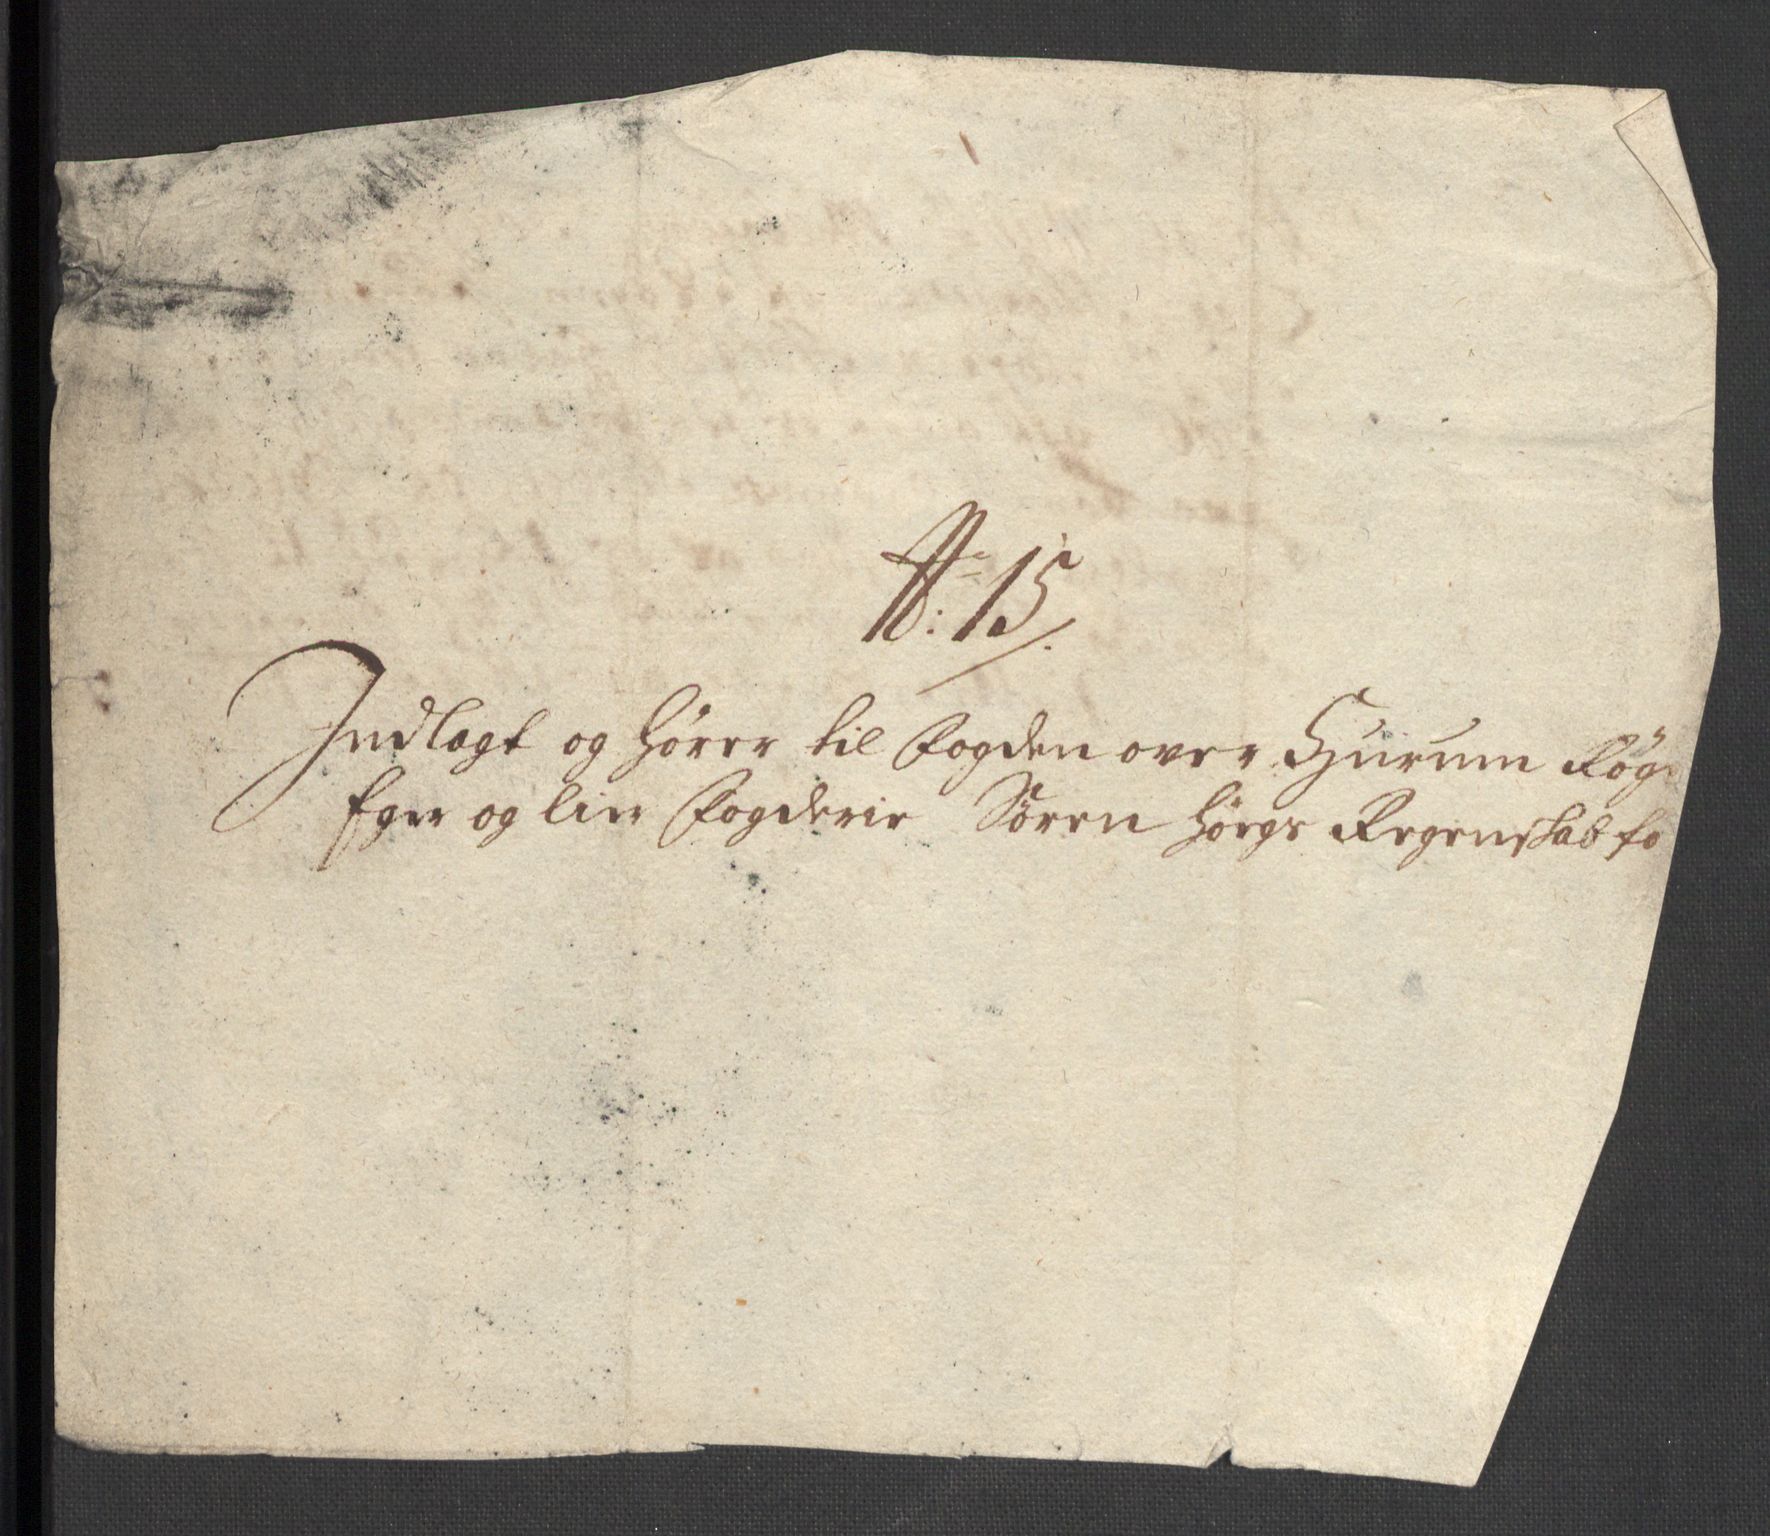 No: 15
Indlagt og hører til Fogden over Hurum Røg
Eger og lier Fogderie Søren Høegs Regenskab fo